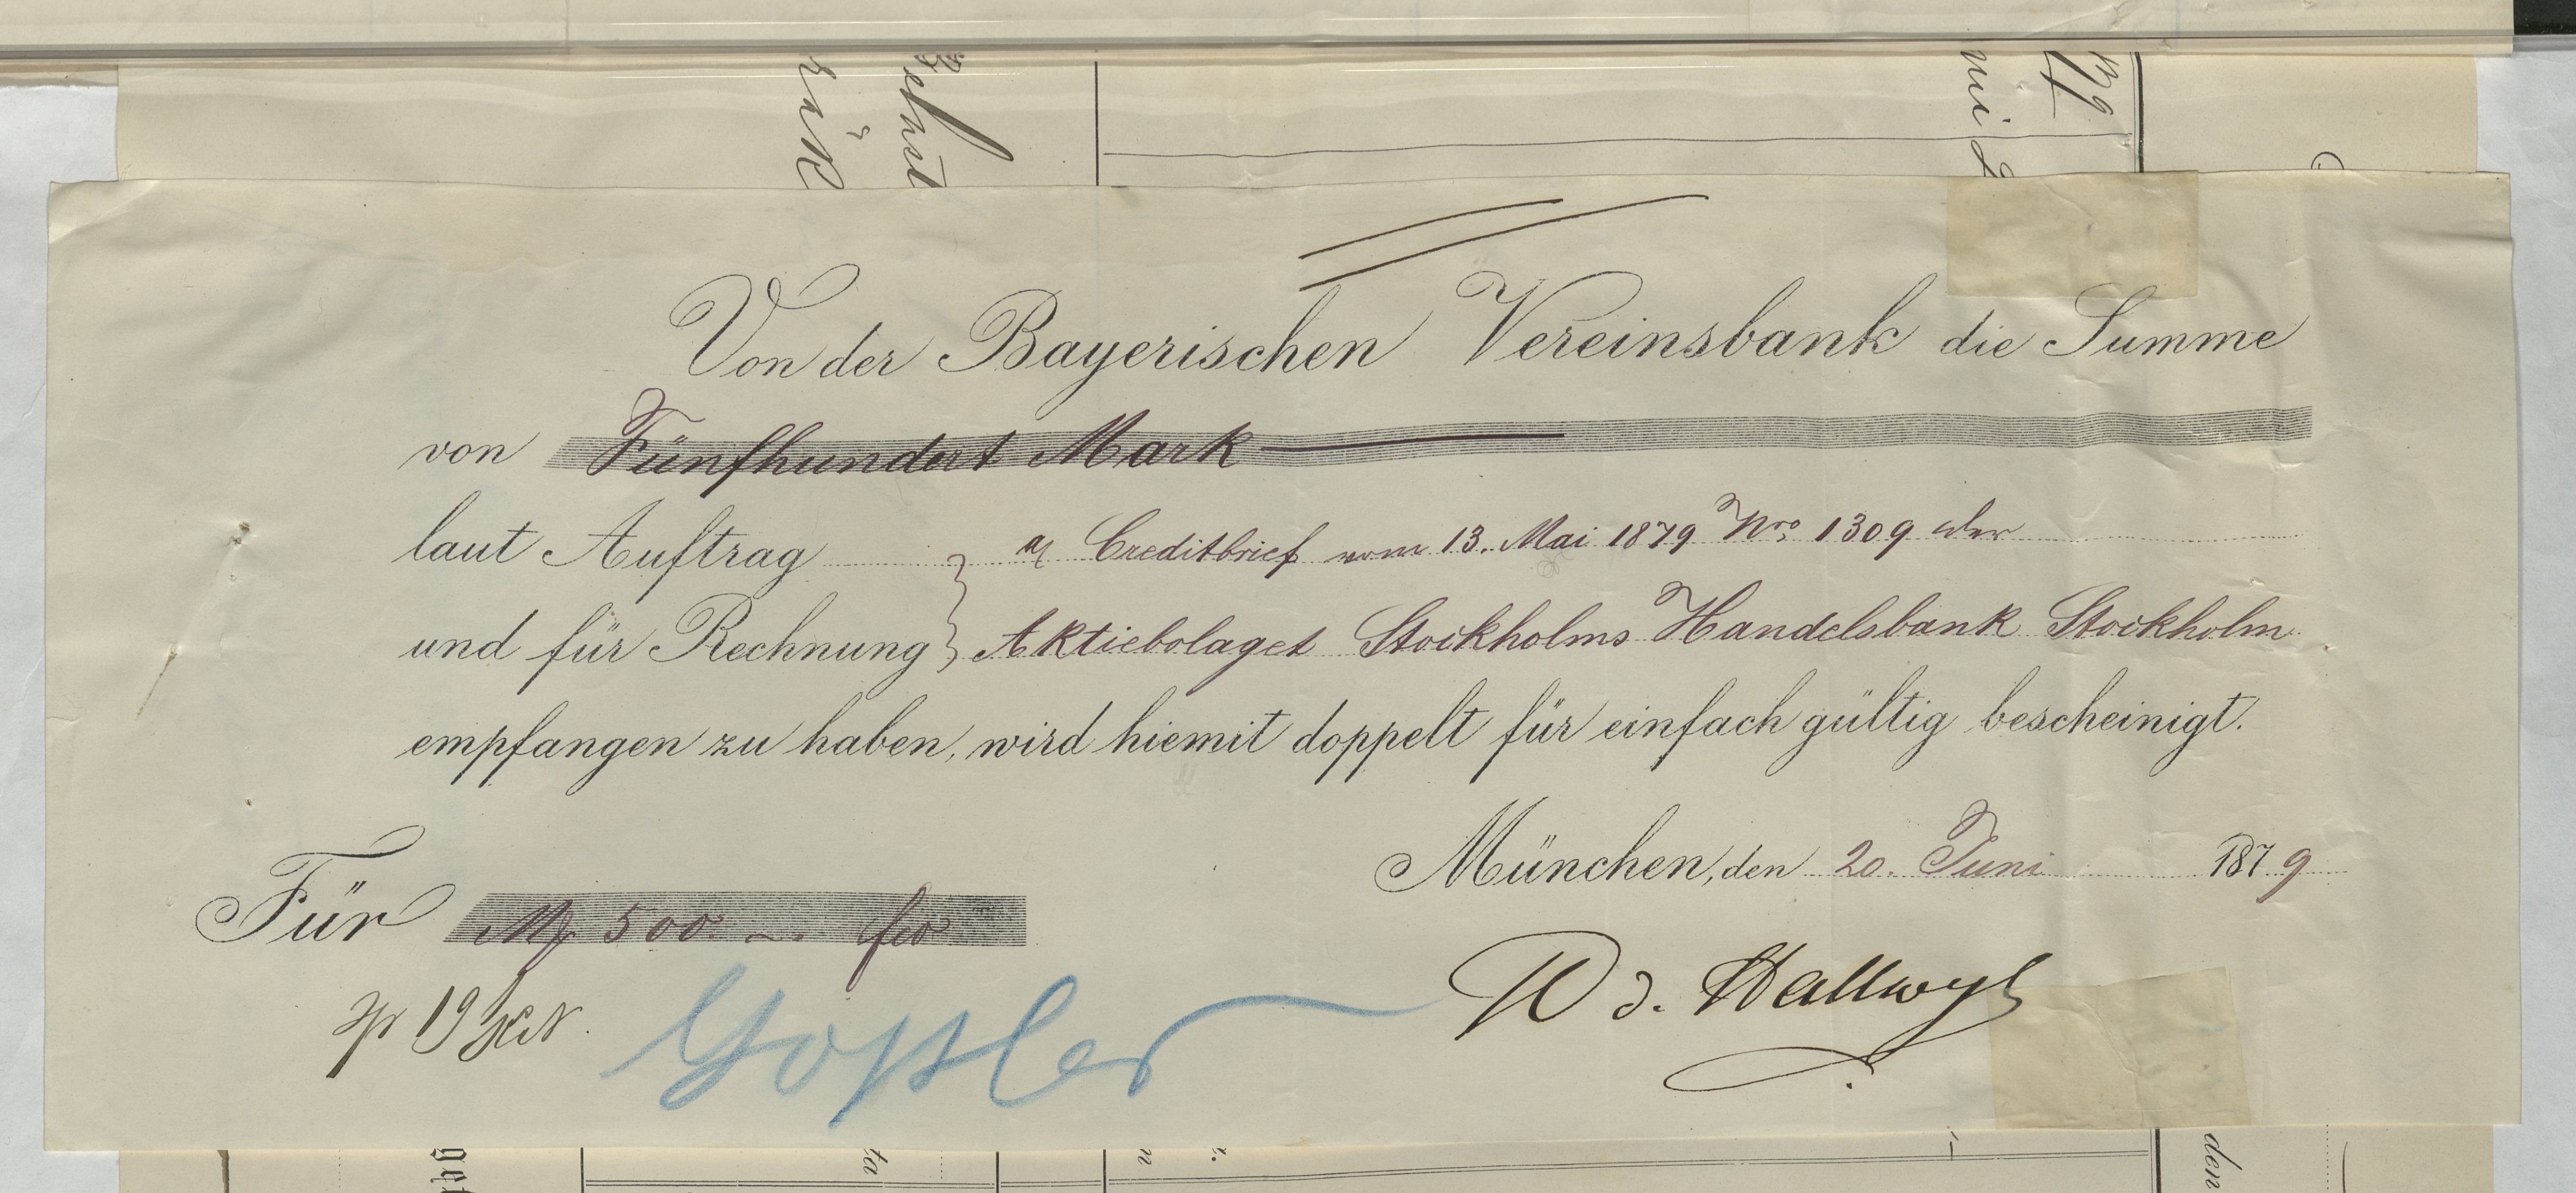 Von der Bayerischen Vereinsbank die Summe
von Fünfhundert Mark
laut Auftrag Creditbrief vom 13. Mai 1879 Nro 1309 der
und für Rechnung Aktiebolaget Stockholms Handelsbank Stockholm
empfangen zu haben, wird hiemit doppelt für einfach gültig bescheinigt.
München, den 20. Juni 1879
Für M 500.
W v. Hallwyl
19 Oct.
den